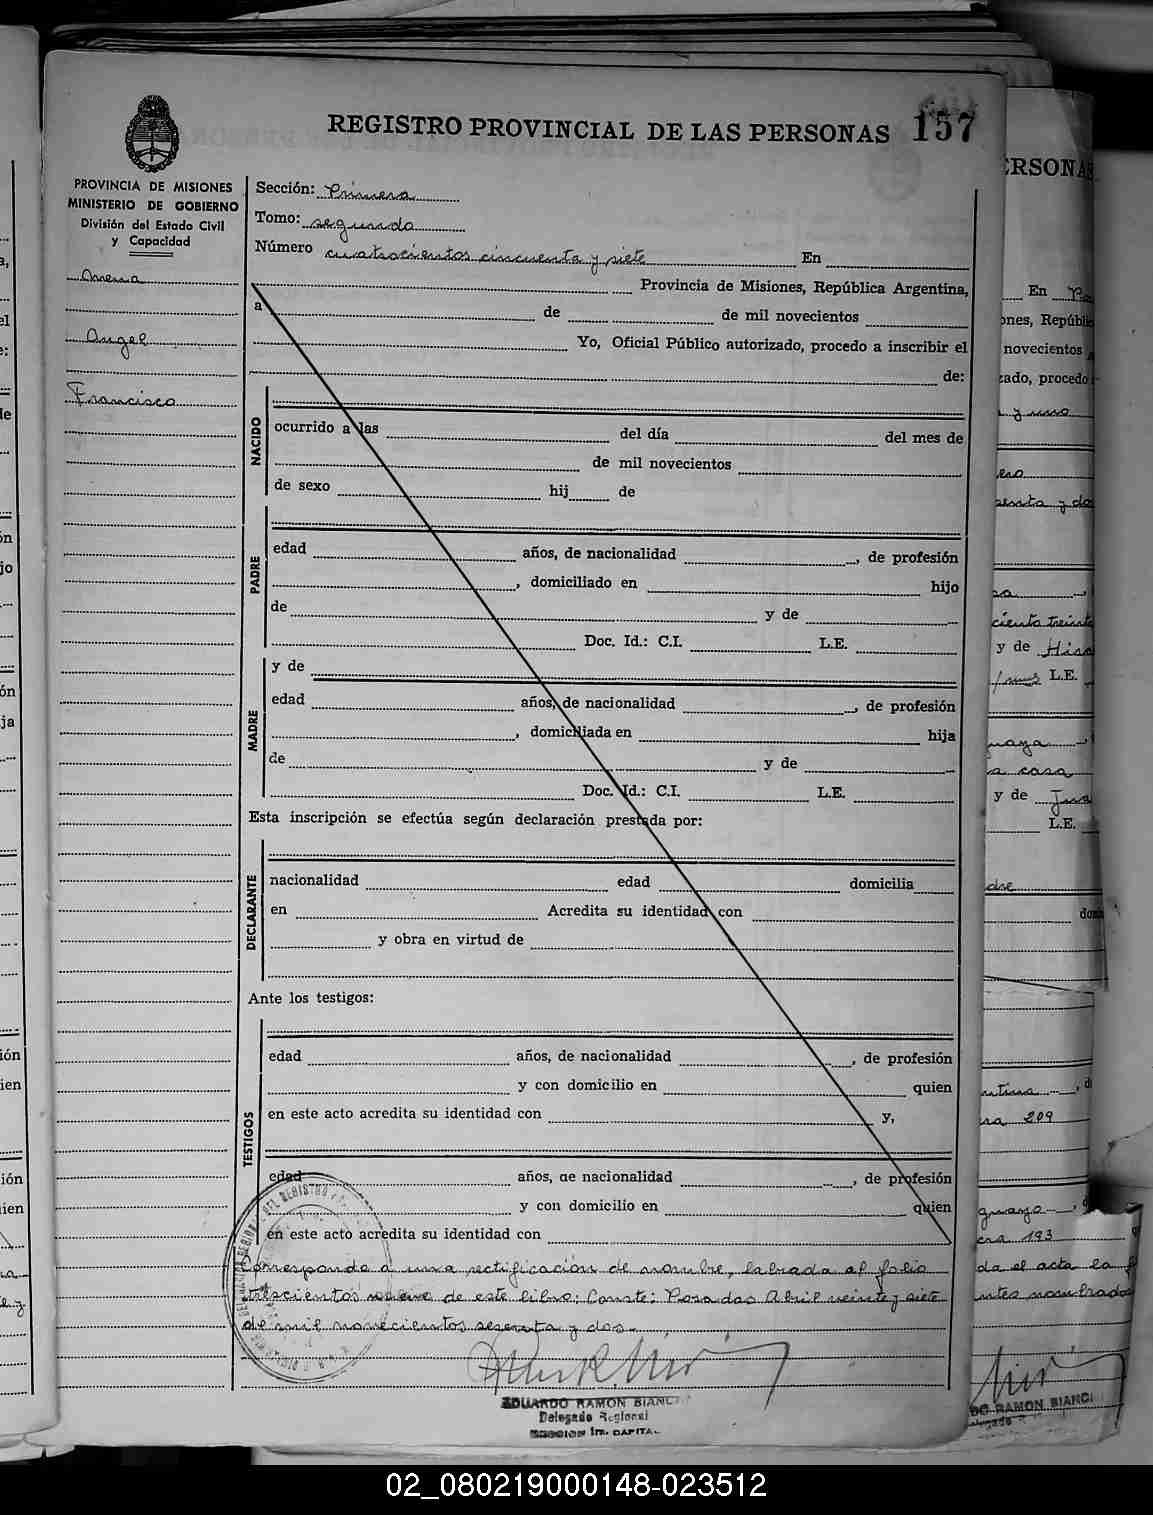 REGISTRO PROVINCIAL DE LAS PERSONAS 157
PROVINCIA DE MISIONES
MINISTERIO DE GOBIERNO
División del Estado Civil
y Capacidad
Angel
Francisco
Sección: Primera
Tomo: segundo
Número cuatrocientos cincuenta y siete En
Provincia de Misiones, República Argentina,
a de de mil novecientos
Yo, Oficial Público autorizado, procedo a inscribir el
de:
NACIDO
ocurrido a las del día del mes de
de mil novecientos
de sexo hij de
PADRE
edad años, de nacionalidad , de profesión
, domiciliado en hijo
de y de
Doc. Id.: C.I. L.E.
MADRE
y de
edad años, de nacionalidad , de profesión
, domiciliada en hija
de y de
Doc. Id.: C.I. L.E.
Esta inscripción se efectúa según declaración prestada por:
DECLARANTE
nacionalidad edad domicilia
en Acredita su identidad con
y obra en virtud de
Ante los testigos:
TESTIGOS
edad años, de nacionalidad , de profesión
y con domicilio en quien
en este acto acredita su identidad con y,
edad años, de nacionalidad , de profesión
y con domicilio en quien
en este acto acredita su identidad con
Corresponde a una rectificación de nombre, labrada al folio
trescientos nueve de este libro; Conste: Posadas Abril veinte y siete
de mil novecientos sesenta y dos.
EDUARDO RAMON BIANCHI
Delegado Regional
SECCION 1ra. CAPITAL
ERSONAS
En
ones, Repúbli
novecientos
zado, procedo
y uno
y de
L.E.
y de
L.E.
209
193
da el acta la
ntes nombrados
DO RAMON BIANCHI
02_080219000148-023512